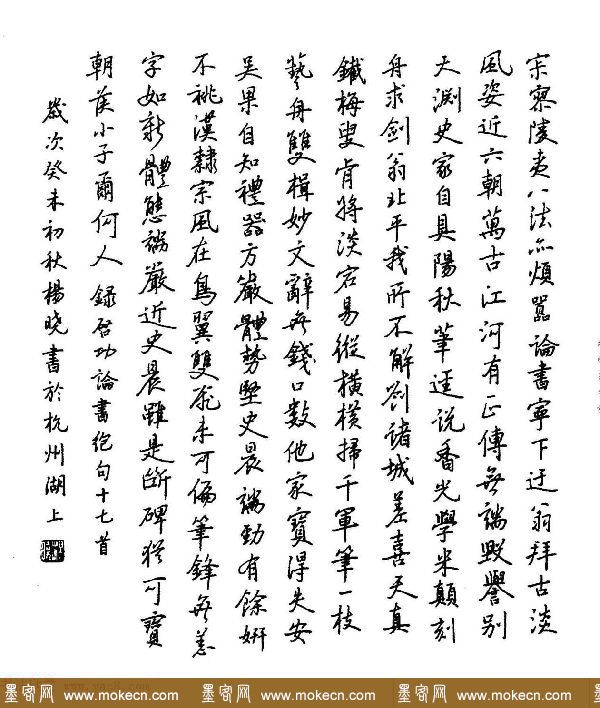 陵夷八法亦煩囂論書寧下迂翁拜古淡
風姿近六朝萬古江河有正傳無端毀譽別
天淵史家自具陽秋筆逕說香光學米顛刻
舟求劍翁北平我所不解劉諸城差喜天真
鐵梅叟肯將淡宕易縱橫橫掃千軍筆一枝
藝舟雙楫妙文辭無錢口數他家寶得失安
吳果自知禮器方嚴體勢堅史晨端勁有餘妍
不祧漢隸宗風在鳥翼雙飛未可偏筆鋒無恙
字如新體態端嚴近史晨雖是斷碑猶可寶
朝侯小子爾何人錄啓功論書絕句十七首
歲次癸未初秋楊曉書於杭州湖上
墨客网 www.mokecn.com 墨客网 www.mokecn.com 墨客网 www.mokecn.com